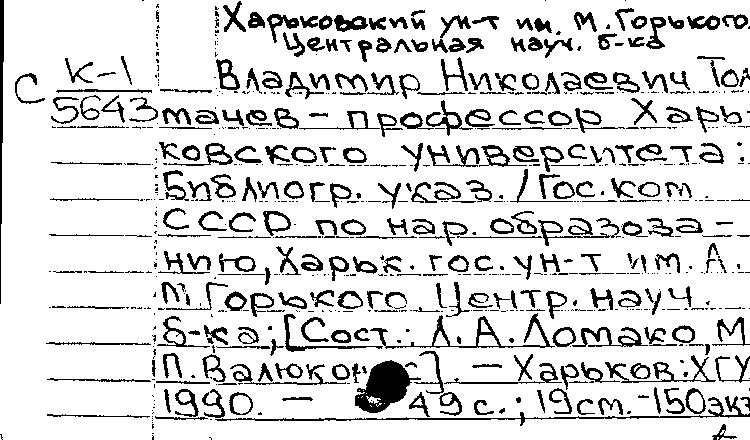 Харьковский ун-т им. М. Горького.
Центральная науч. б-ка
К-1 Владимир Николаевич Тол
С 5643 мачев - профессор Харь-
ковского университета:
Библиогр. указ. / Гос. ком.
СССР по нар. образоза-
нию, Харьк. гос. ун-т им. А.
М. Горького. Центр. науч.
б-ка; [Сост.: Л. А. Ломако, М
П. Валюко ]. - Харьков: ХГУ
1990. - 49 с.; 19 см. - 150 экз